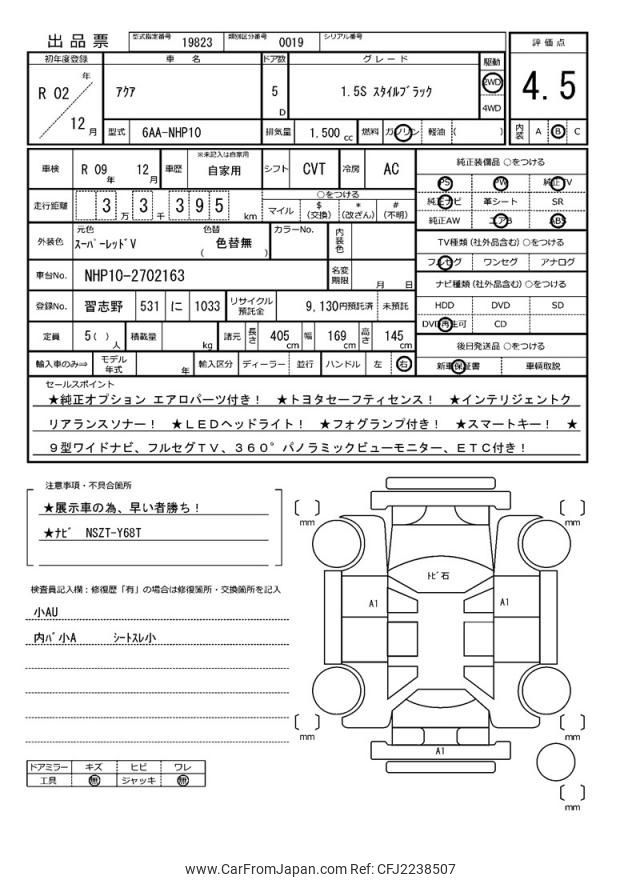 出品票 型式指定番号 19823 類別区分番号 0019 シリアル番号
評価点
初年度登録 車名 ドア数 グレード 駆動
R 02 年 12 月
アクア
5 D
1.5S スタイルブラック
2WD
4WD
4.5
型式 6AA-NHP10 排気量 1.500 cc 燃料 ガソリン 軽油 ( )
内装 A B C
車検 R 09 年 12 月 車歴 ※未記入は自家用 自家用 シフト CVT 冷房 AC
走行距離 3 万 3 千 3 9 5 km
○をつける
マイル $(交換) *(改ざん) #(不明)
外装色 元色 スーパーレッドV 色替 ( 色替無 ) カラーNo. 内装色
車台No. NHP10-2702163 名変期限 月 日
登録No. 習志野 531 に 1033 リサイクル預託金 9,130円預託済 未預託
定員 5( ) 人 積載量 kg 諸元 長さ 405 cm 幅 169 cm 高さ 145 cm
輸入車のみ⇒ モデル年式 年 輸入区分 ディーラー 並行 ハンドル 左 右
純正装備品 ○をつける
PS PW 純正TV
純正ナビ 革シート SR
純正AW エアB ABS
TV種類(社外品含む)○をつける
フルセグ ワンセグ アナログ
ナビ種類(社外品含む)○をつける
HDD DVD SD
DVD再生可 CD
後日発送品 ○をつける
新車保証書 車輌取説
セールスポイント
★純正オプション エアロパーツ付き! ★トヨタセーフティセンス! ★インテリジェントク
リアランスソナー! ★LEDヘッドライト! ★フォグランプ付き! ★スマートキー! ★
9型ワイドナビ、フルセグTV、360°パノラミックビューモニター、ETC付き!
注意事項・不具合箇所
★展示車の為、早い者勝ち!
★ナビ NSZT-Y68T
検査員記入欄:修復歴「有」の場合は修復箇所・交換箇所を記入
小AU
内バ小A シートスレ小
ドアミラー キズ ヒビ ワレ
工具 無 ジャッキ 無
mm
mm
トビ石
A1
A1
mm
mm
A1
mm
www.CarFromJapan.com Ref: CFJ2238507